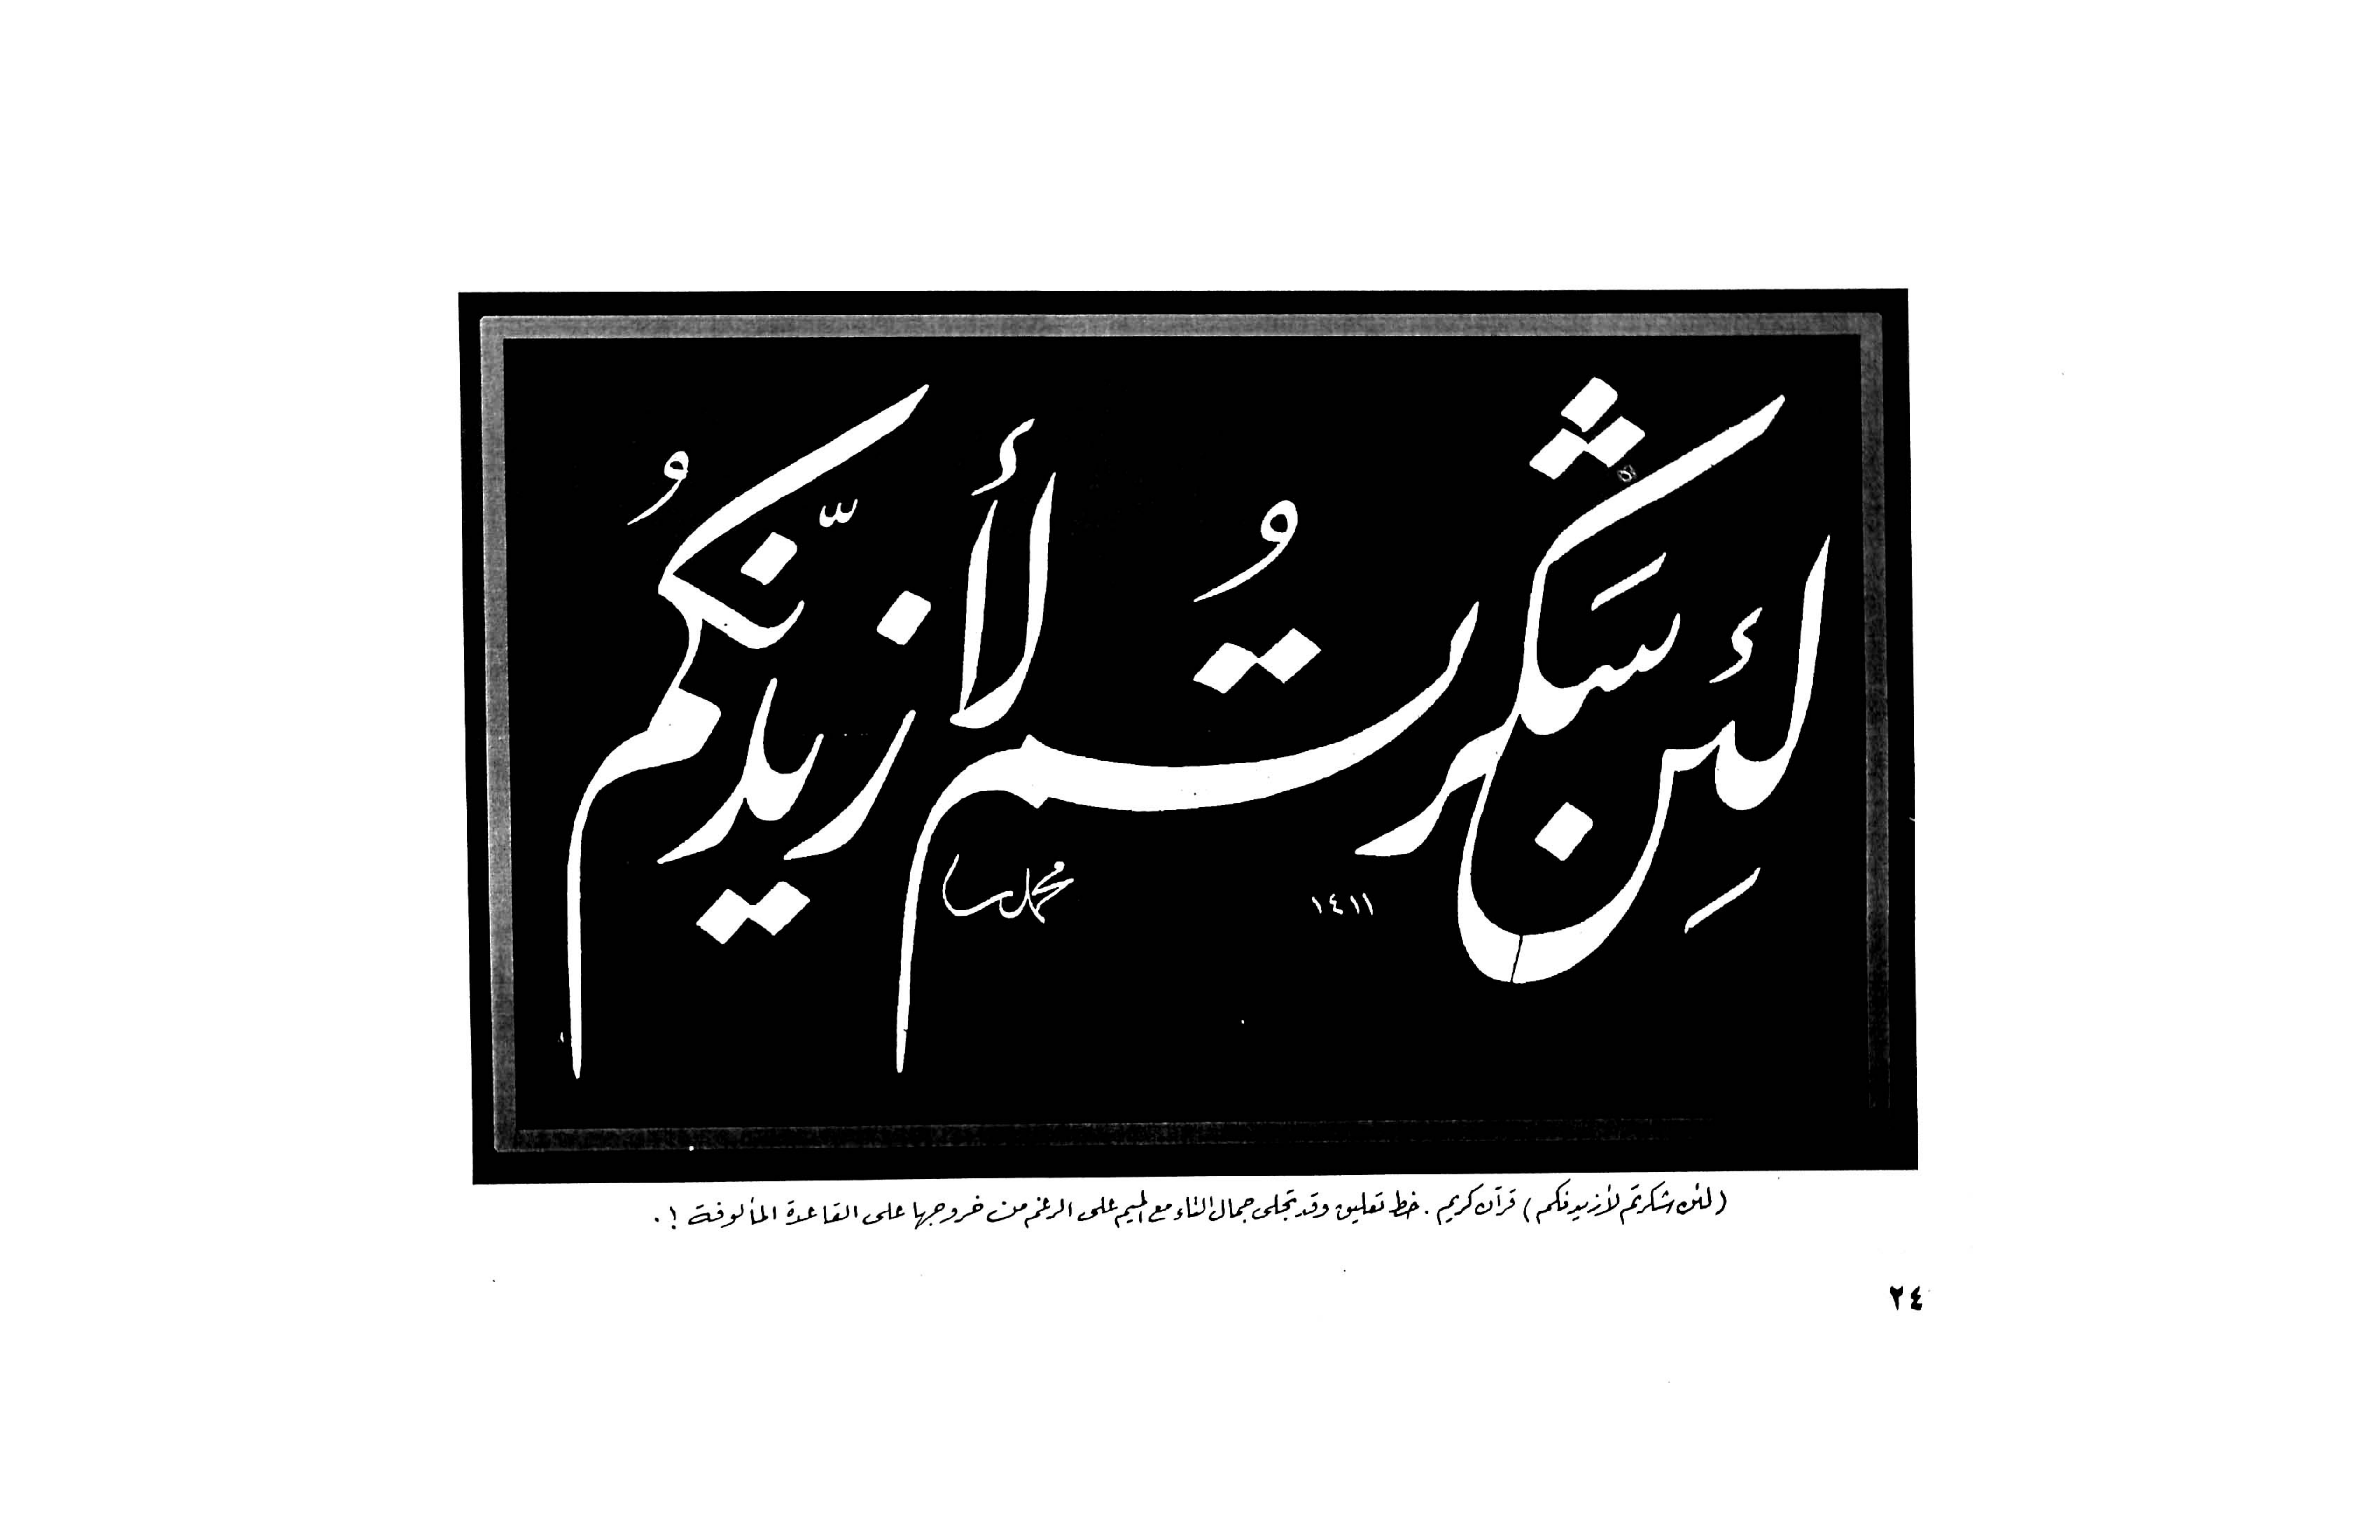 لَئِن شَكرتُم لأزيدنّكمُ
١٤١١
محمد
(لئن شكرتم لأزيدنكم) قرآن كريم . خط تعليق وقد تجلى جمال التاء مع الميم على الرغم من خروجها على القاعدة المألوفة ! .
٢٤